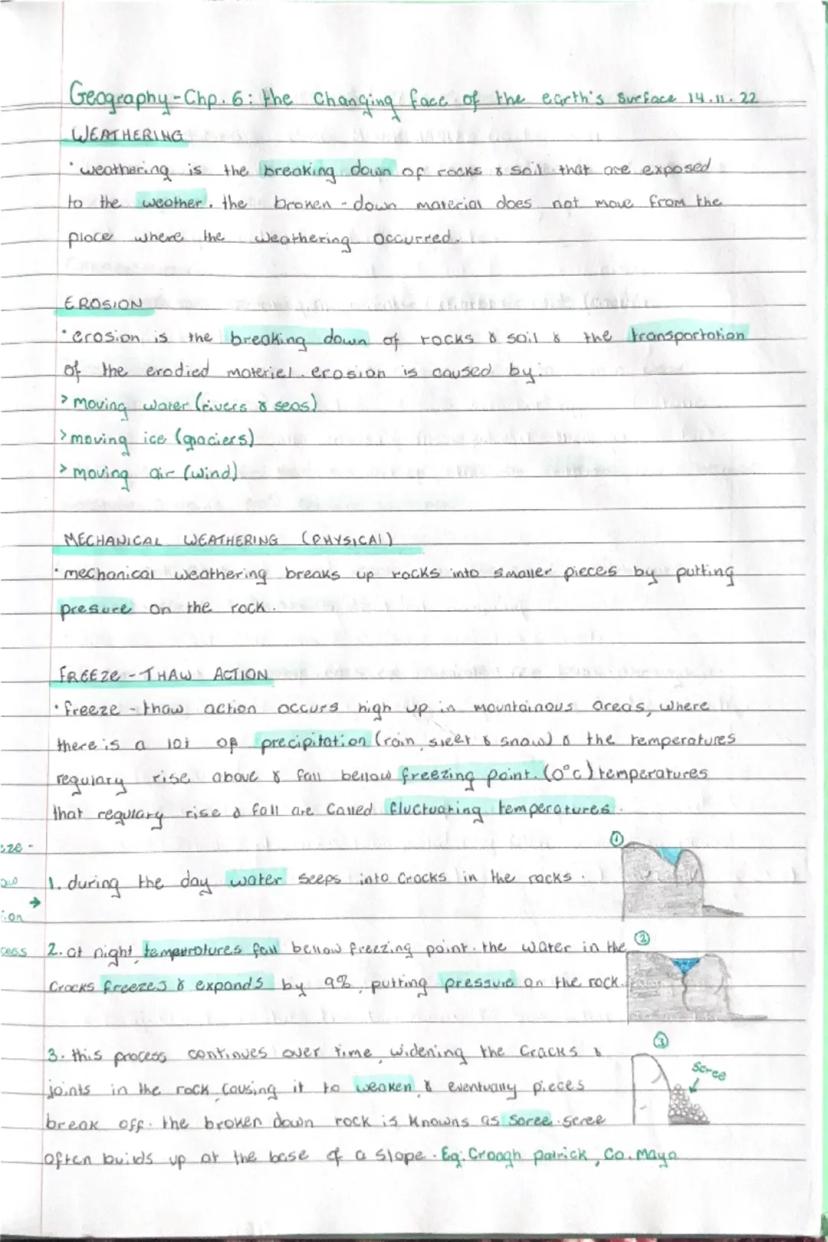 Geography - Chp. 6: the changing face of the earth's surface 14.11.22
WEATHERING
· weathering is the breaking down of rocks & soil that are exposed
to the weather. the broken - down material does not move from the
place where the weathering occurred.
EROSION
· erosion is the breaking down of rocks & soil & the transportation
of the erodied materiel. erosion is caused by:
> moving water (rivers & seas)
> moving ice (glaciers)
> moving air (wind)
MECHANICAL WEATHERING (PHYSICAL)
· mechanical weathering breaks up rocks into smaller pieces by putting
presure on the rock.
FREEZE - THAW ACTION
· freeze - thaw action occurs high up in mountainous areas, where
there is a lot of precipitation (rain, sleet & snow) & the temperatures
regulary rise above & fall bellow freezing point. (0°c) temperatures
that regulary rise & fall are called fluctuating temperatures.
1. during the day water seeps into cracks in the rocks.
①
2. at night, temperatures fall bellow freezing point. the water in the
②
cracks freezes & expands by 9%, putting pressure on the rock.
3. this process continues over time, widening the cracks &
③
joints in the rock, causing it to weaken, & eventually pieces
scree
break off. the broken down rock is knowns as scree. scree
often builds up at the base of a slope. Eg: Croagh patrick, Co. Mayo